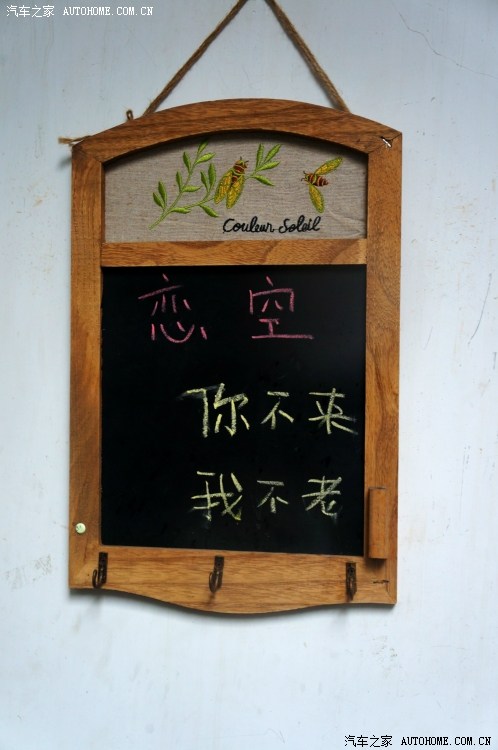 汽车之家 AUTOHOME.COM.CN
Couleur Soleil
恋 空
你不来
我不老
汽车之家 AUTOHOME.COM.CN